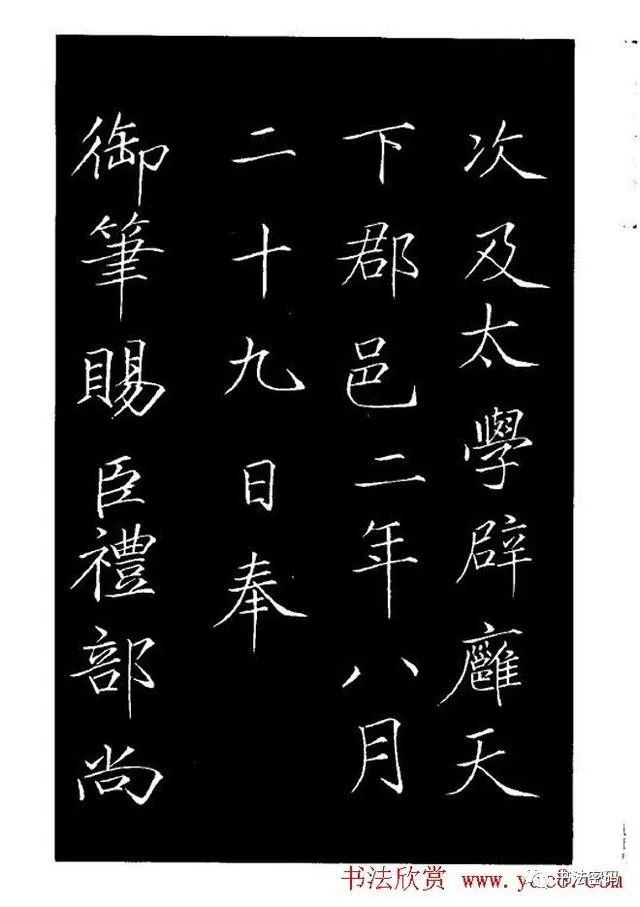 次及太學辟廱天
下郡邑二年八月
二十九日奉
御筆賜臣禮部尚
书法欣赏
书法密码